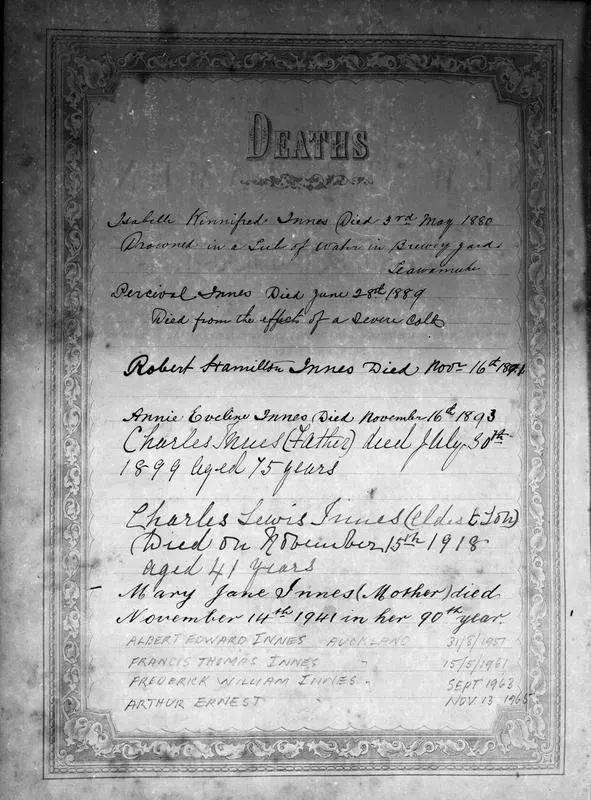 DEATHS
Isabelle Winnifred Innes Died 3rd May 1880
Drowned in a Tub of Water in Brewery yard
Percival Innes Died June 28th 1889
Died from the effects of a Severe Cold
Robert Hamilton Innes Died Novr 16th
Annie Eveline Innes Died November 16th 1893
Charles Innes (Father) died July 30th
1899 aged 75 years
Charles Lewis Innes (eldest Son)
Died on November 15th 1918
aged 41 years
Mary Jane Innes (Mother) died
November 14th 1941 in her 90th year.
ALBERT EDWARD INNES AUCKLAND 31/8/1957
FRANCIS THOMAS INNES " 15/5/1961
FREDERICK WILLIAM INNES " SEPT 1963
ARTHUR ERNEST " NOV. 13 1965